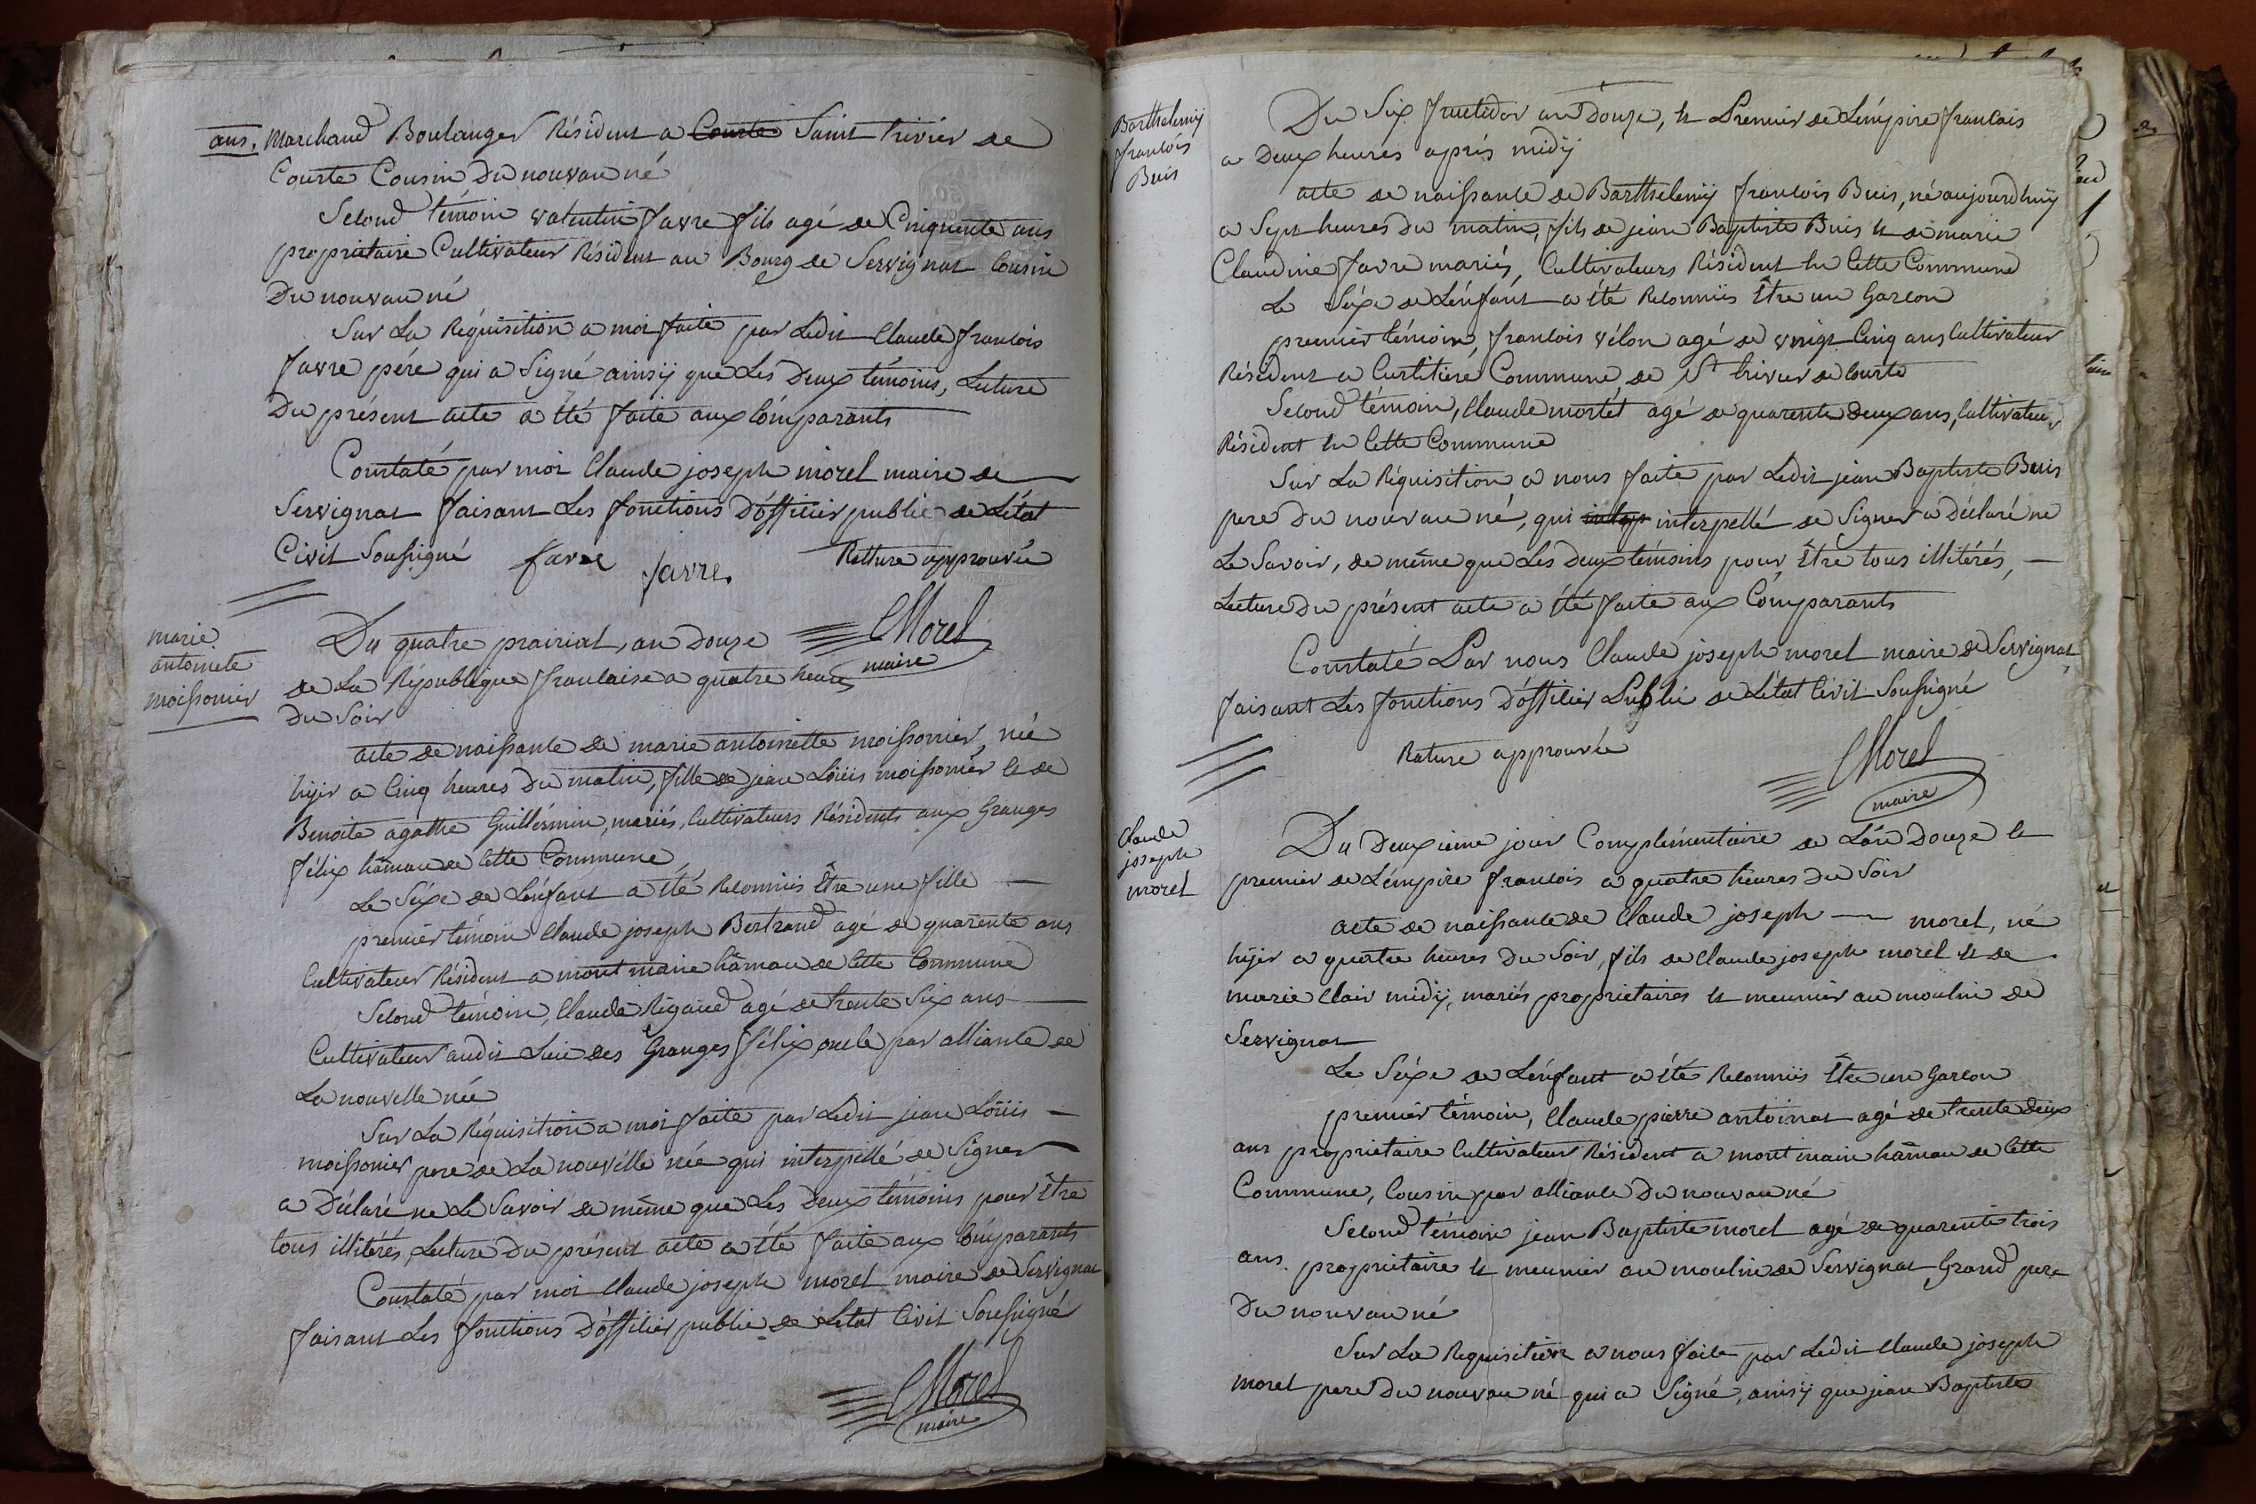 ans, Marchand Boulanger Résident a Courte Saint trivier de
Courte Cousin Du nouvau né
Second témoin valentin favre fils agé de Cinquente ans
proprietaire Cultivateur Résident au Bourg de Servignat Cousin
Du nouvau né
Sur La Réquisition a moi faite par Ledit Claude francois
favre pére qui a Signé ainsÿ que Les Deux témoins, Lecture
Du présent acte a été faite aux Comparants
Constaté par moi Claude joseph morel maire de
Servignat faisant Les fonctions D'officier public de L'état
Civil Soussigné favre favre Ratture approuvée
CMorel
maire
marie
antoinete
moissonier
Du quatre prairial, an Douze
de La République francaise a quatre heures
Du Soir
acte de naissance de marie antoinette moissonier, née
hÿer a Cinq heures Du matin, fille de jean Loüis moissonier et de
Benoite agathe Guillérmin, mariés, Cultivateurs Résidents aux Granges
félix hâmau de Cette Commune
Le Séxe de L'énfant a été Reconnüs Être une fille
premier témoin Claude joseph Bertrand agé de quarente ans
Cultivateur Résident a mont main hâmau de Cette Commune
Second témoin, Claude Rigaud agé de trente Six ans
Cultivateur audit Lieu des Granges félix oncle par alliance de
La nouvelle née
Sur La Réquisition a moi faite par Ledit jean Loüis
moissonier pere de La nouvélle née qui interpéllé de Signer
a Déclaré ne Le Savoir de même que Les Deux témoins pour Être
tous illitérés, Lecture Du présent acte a été faite aux Comparants
Constaté par moi Claude joseph morel maire de Servignat
faisant Les fonctions D'officier public de L'état Civil Soussigné
CMorel
maire
Barthelemÿ
francois
Buis
Du Six fructidor an Douze, et Premier de L'émpire francais
a Deux heures aprés midÿ
acte de naissance de Barthelemÿ francois Buis, né aujourd'huÿ
a Sept heures Du matin, fils de jean Baptiste Buis et de marie
Claudine favre mariés, Cultivateurs Résident en Cette Commune
Le Séxe de L'énfant a été Reconnüs Être un Garcon
premier témoin, francois vélon agé de vingt Cinq ans Cultivateur
Résident a Curtitiere Commune de St trivier de Courte
Second témoin, Claude mortét agé de quarente Deux ans, Cultivateur
Résident en Cette Commune
Sur La Réquisition a nous faite par Ledit jean Baptiste Buis
pere Du nouvau né, qui interpéllé de Signer a Déclaré ne
Le Savoir, de même que Les Deux témoins pour Être tous illitérés,
Lecture Du présent acte a été faite aux Comparants
Constaté Par nous Claude joseph morel maire de Servignat,
faisant Les fonctions D'officier Public de L'état Civil Soussigné
Rature approuvée
CMorel
maire
Claude
joseph
morel
Du Deuxieme jour Complémentaire de L'an Douze et
premier de L'émpire francois a quatre heures Du Soir
acte de naissance de Claude joseph morel, né
hÿer a quatre heures Du Soir, fils de Claude joseph morel et de
marie Clair midÿ, mariés proprietaires et meunier au moulin de
Servignat
Le Séxe de L'énfant a été Reconnüs Être un Garcon
premier témoin, Claude pierre antoinat agé de trente Deux
ans proprietaire Cultivateur Résident a mont main hâmau de Cette
Commune, Cousin par alliance Du nouvau né
Second témoin jean Baptiste morel agé de quarente trois
ans, proprietaire et meunier au moulin de Servignat Grand pere
Du nouvau né
Sur La Requisition a nous faite par Ledit Claude joseph
morel pere Du nouvau né qui a Signé, ainsÿ que jean Baptiste